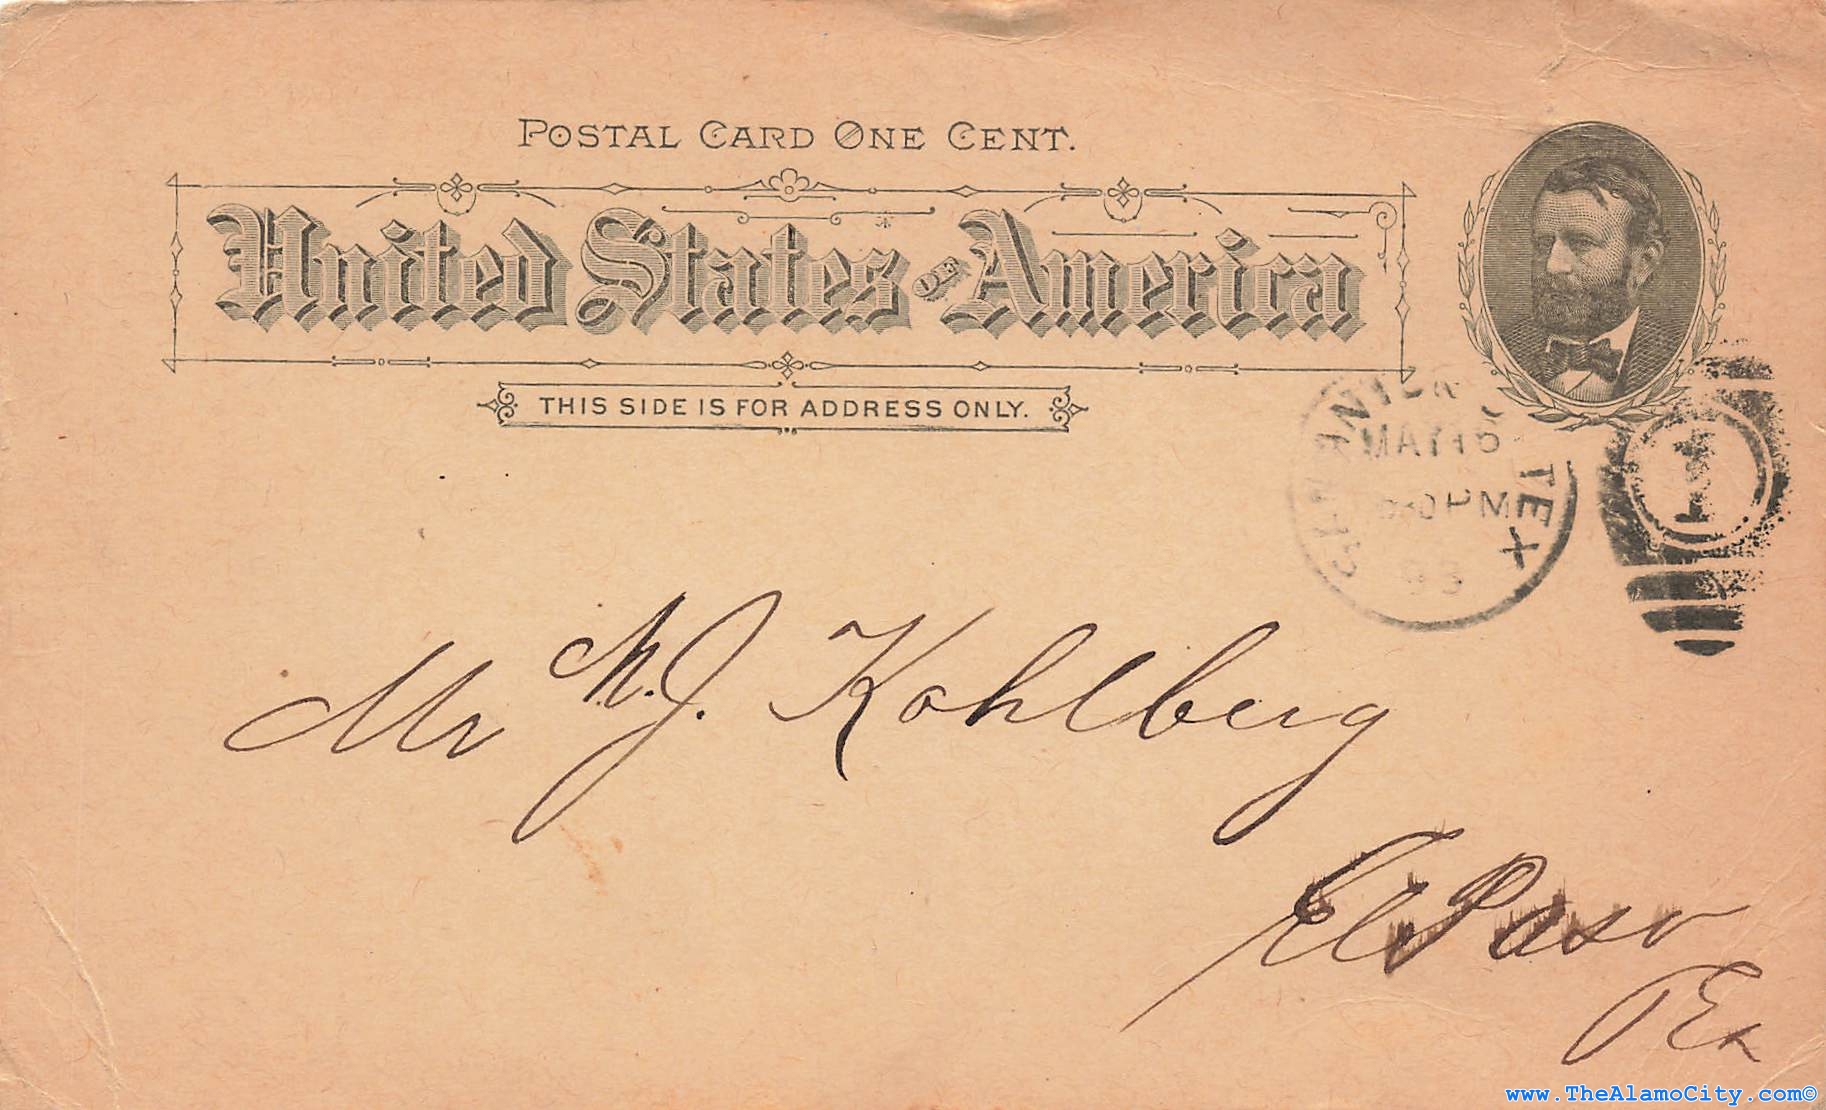 POSTAL CARD ONE CENT.
United States OF America
THIS SIDE IS FOR ADDRESS ONLY.
SAN ANTONIO TEX
MAY 16
PM
93
1
Mr M. J. Kohlberg
El Paso
Tex
www.TheAlamoCity.com©